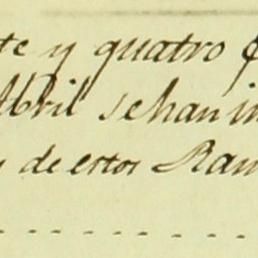 te y quatro
Abril se han in
de estos Ram